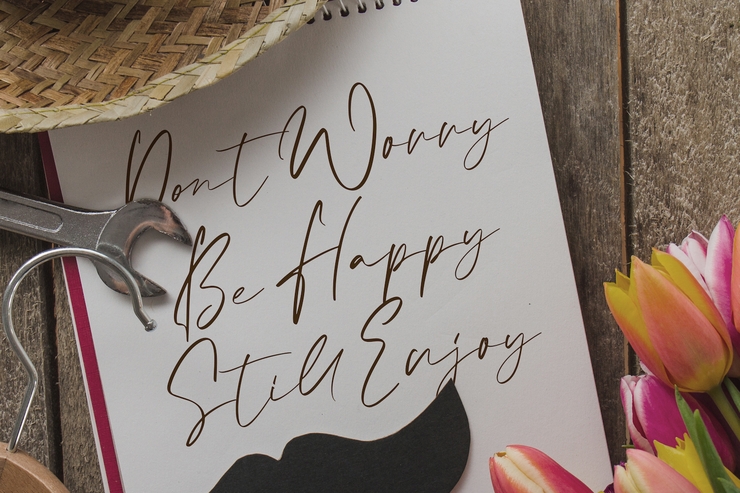 Dont Worry
Be Happy
Still Enjoy